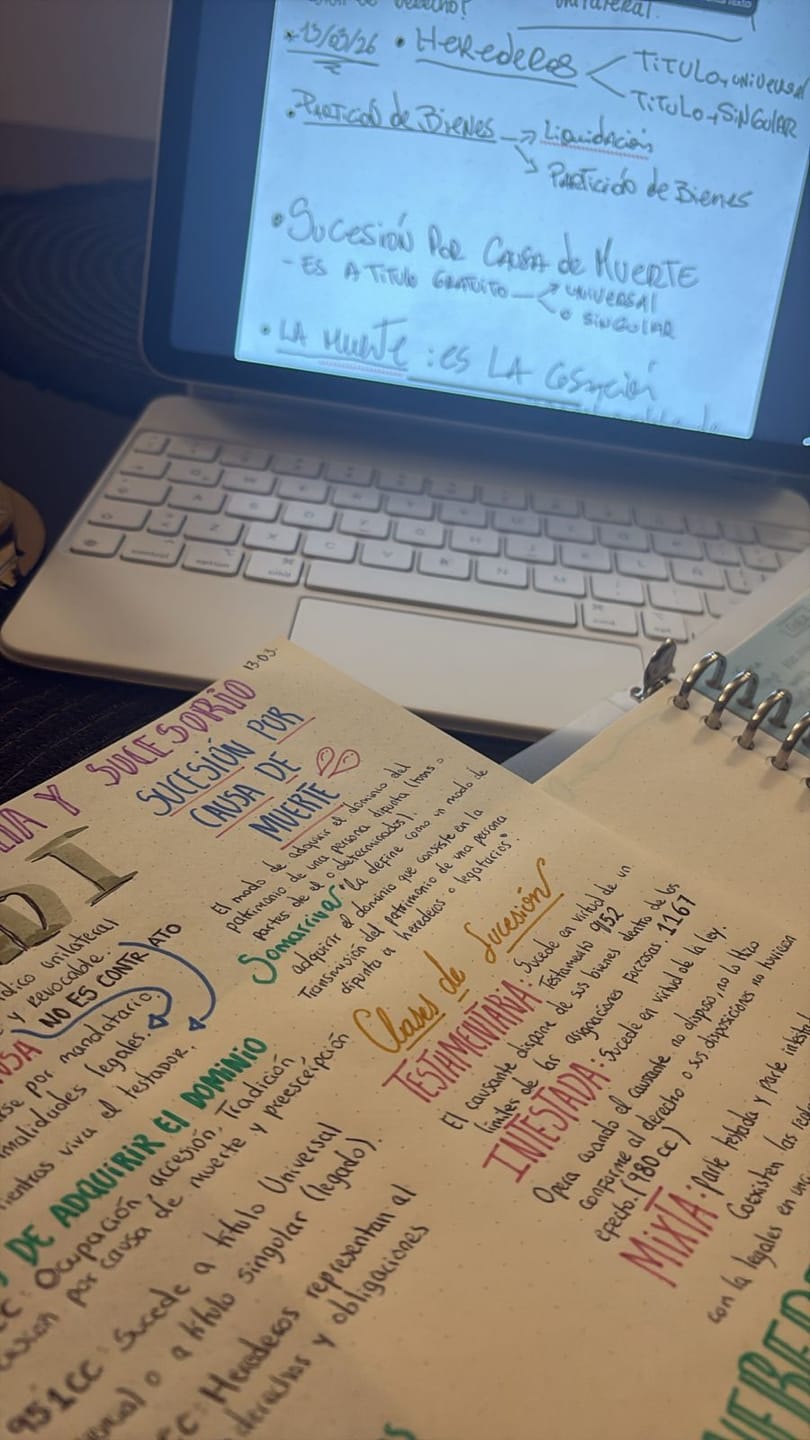 unilateral.
* 13/03/26 • Herederos
TITULO, UNIVERSAL
TITULO, SINGULAR
• Partición de Bienes → Liquidación
Partición de Bienes
• Sucesión Por Causa de Muerte
- ES A TITULO GRATUITO — UNIVERSAL
o SINGULAR
• LA MUERTE : es LA cesación
13-03.
Y SUCESORIO
SUCESIÓN POR
CAUSA DE
MUERTE
El modo de adquirir el dominio del
patrimonio de una persona difunta (trans o
partes de el o determinados).
Somarriva "la define como un modo de
adquirir el dominio que consiste en la
transmisión del patrimonio de una persona
difunta a herederos o legatarios"
Clases de Sucesión
TESTAMENTARIA: Sucede en virtud de un
Testamento 952
El causante dispone de sus bienes dentro de los
límites de las asignaciones forzosas. 1167
INTESTADA: Sucede en virtud de la ley.
Opera cuando el causante no dispuso, no lo hizo
conforme al derecho o sus disposiciones no tuvieron
efecto. (980 cc)
MIXTA: Parte testada y parte
Coexisten las
con la legales en
unilateral
y revocable.
NO ES CONTRATO
por mandatario.
legales.
viva el testador.
DE ADQUIRIR EL DOMINIO
CC: Ocupación, accesión, Tradición
por causa de muerte y prescripción
951CC: Sucede a título Universal
o a título singular (legado).
CC: Herederos representan al
derechos y obligaciones